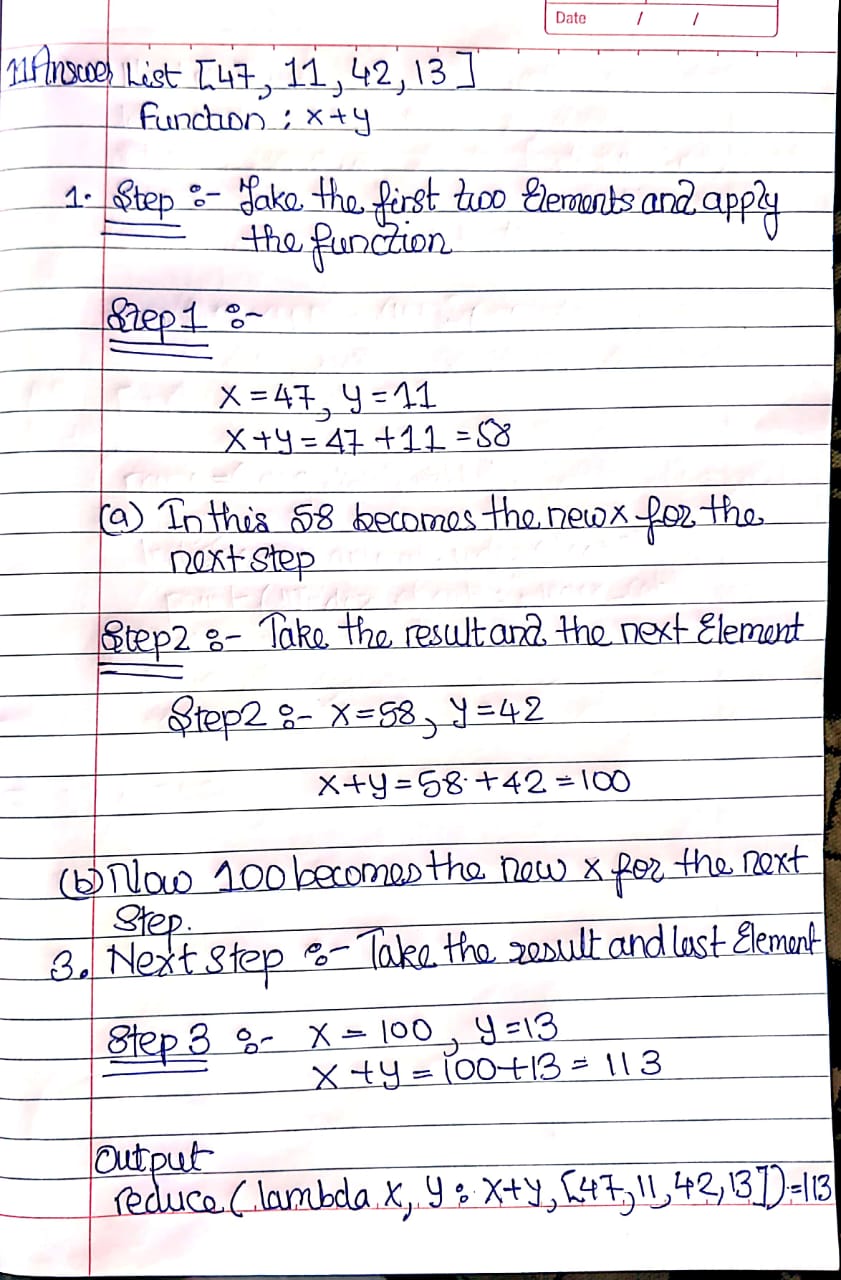 Date / /
11Answer List [47, 11, 42, 13]
Function : x+y
1. Step :- Take the first two Elements and apply
the function
Step 1 :-
x = 47, y = 11
x+y = 47 + 11 = 58
(a) In this 58 becomes the new x for the
next step
Step2 :- Take the result and the next Element
Step2 :- x=58, y=42
x+y=58+42=100
(b) Now 100 becomes the new x for the next
Step.
3. Next step :- Take the result and last Element
Step 3 :- x = 100, y=13
x+y = 100+13 = 113
Output
reduce (lambda x, y : x+y, [47, 11, 42, 13])=113